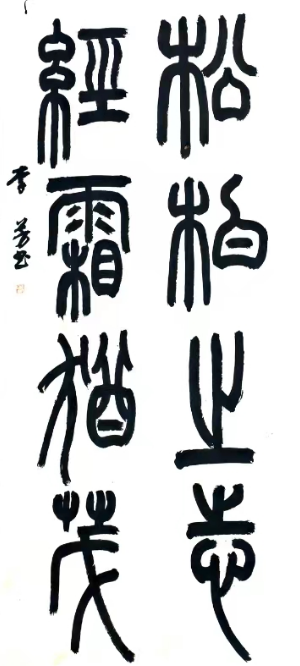 松柏之志
經霜猶茂
李芳书